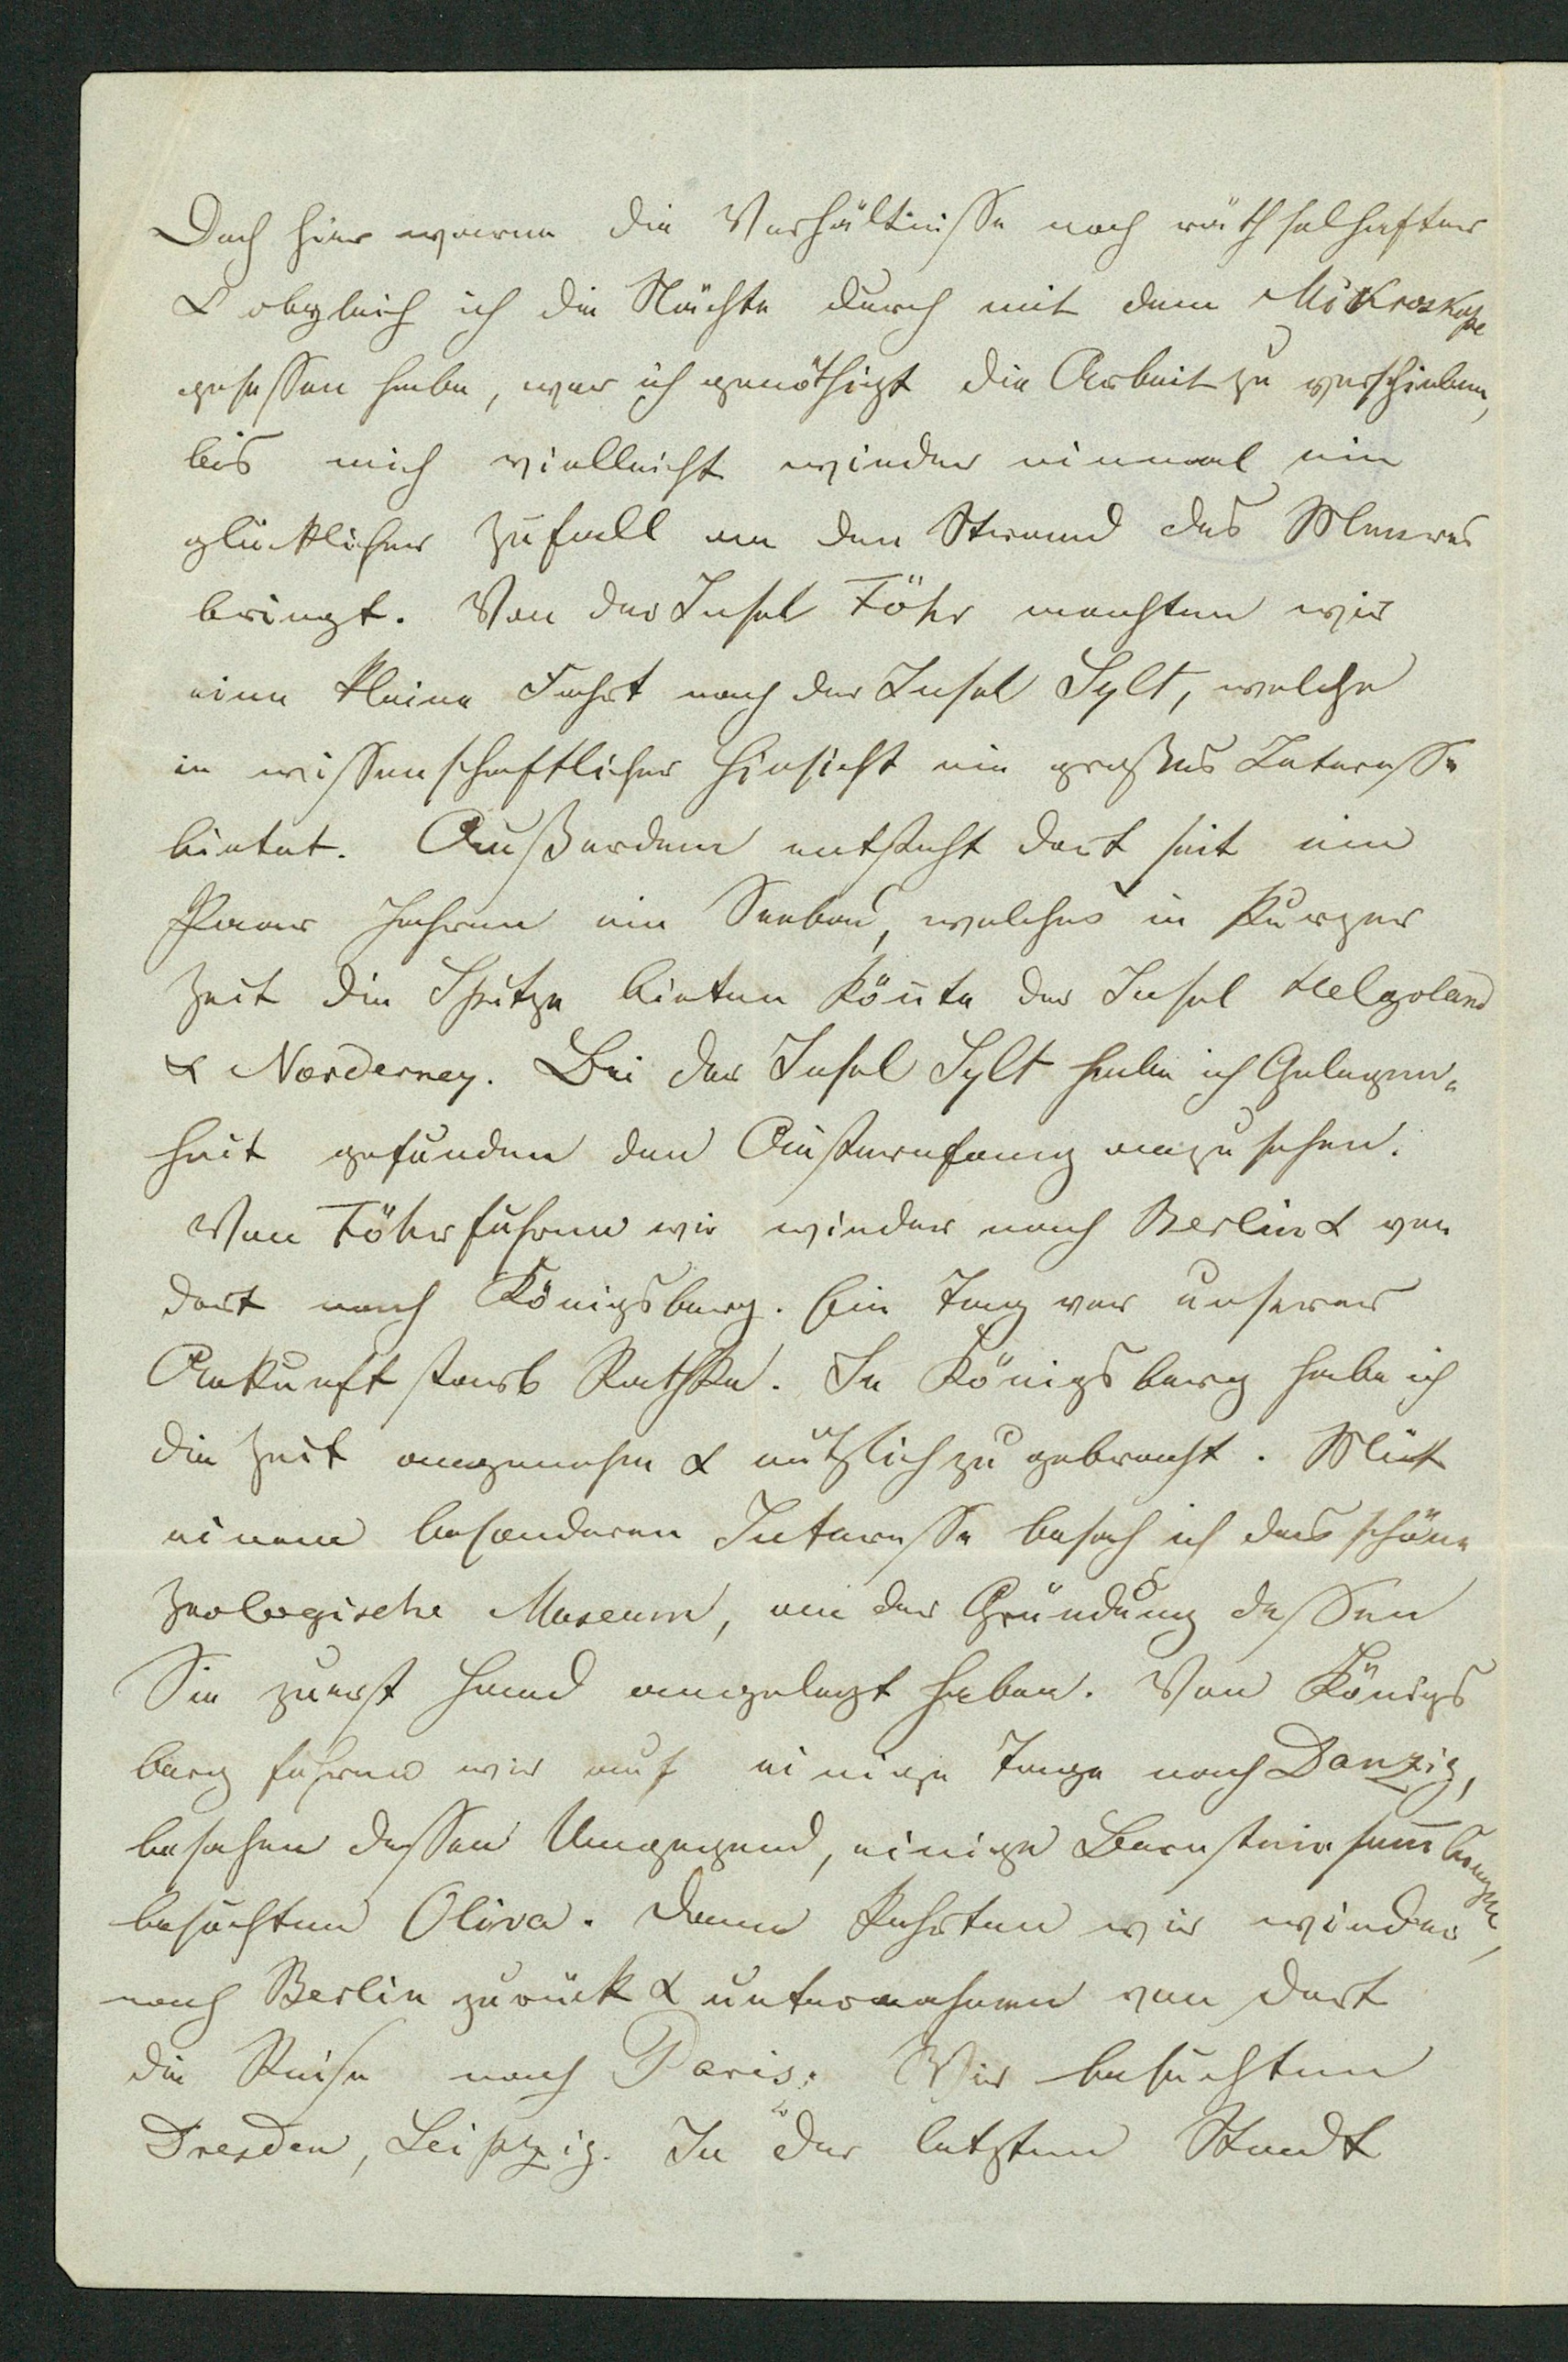 Doch hier waren die Verhältniße noch räthselhafter
& obgleich ich die Nächte durch mit dem Mikroskope
geseßen habe, war ich genöthigt die Arbeit zu verschieben,
bis mich vielleicht wieder einmal ein
glücklicher Zufall an den Strand des Meeres
bringt. Von der Insel Föhr machten wir
eine kleine Fahrt nach der Insel Sylt, welche
in wißenschaftlicher Hinsicht ein großes Intereße
bietet. Außerdem entsteht dort seit ein
Paar Jahren ein Seebad, welches in kurzer
Zeit die Spitze bieten kön̄te der Insel Helgoland
& Norderney. Bei der Insel Sylt habe ich Gelegen-
heit gefunden den Austernfang anzusehen.
Von Föhr fuhren wir wieder nach Berlin & von
dort nach Königsberg. Ein Tag vor unserer
Ankunft starb Rathke. In Königsberg habe ich
die Zeit angenehm & nützlich zugebracht. Mit
einem besonderen Intereße besah ich das schöne
zoologische Museum, an der Gründung deßen
Sie zuerst Hand angelegt haben. Von Königs
berg fuhren wir auf einige Tage nach Danzig,
besahen deßen Umgegend, einige Bernsteinsam̄lungen,
besuchten Oliva. Dann kehrten wir wieder
nach Berlin zurück & unternahmen von dort
die Reise nach Paris. Wir besuchten
Dresden, Leipzig. In der letzten Stadt